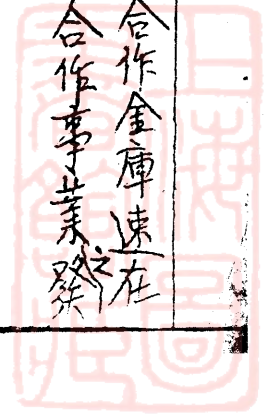 合作金庫速在
合作事業之發